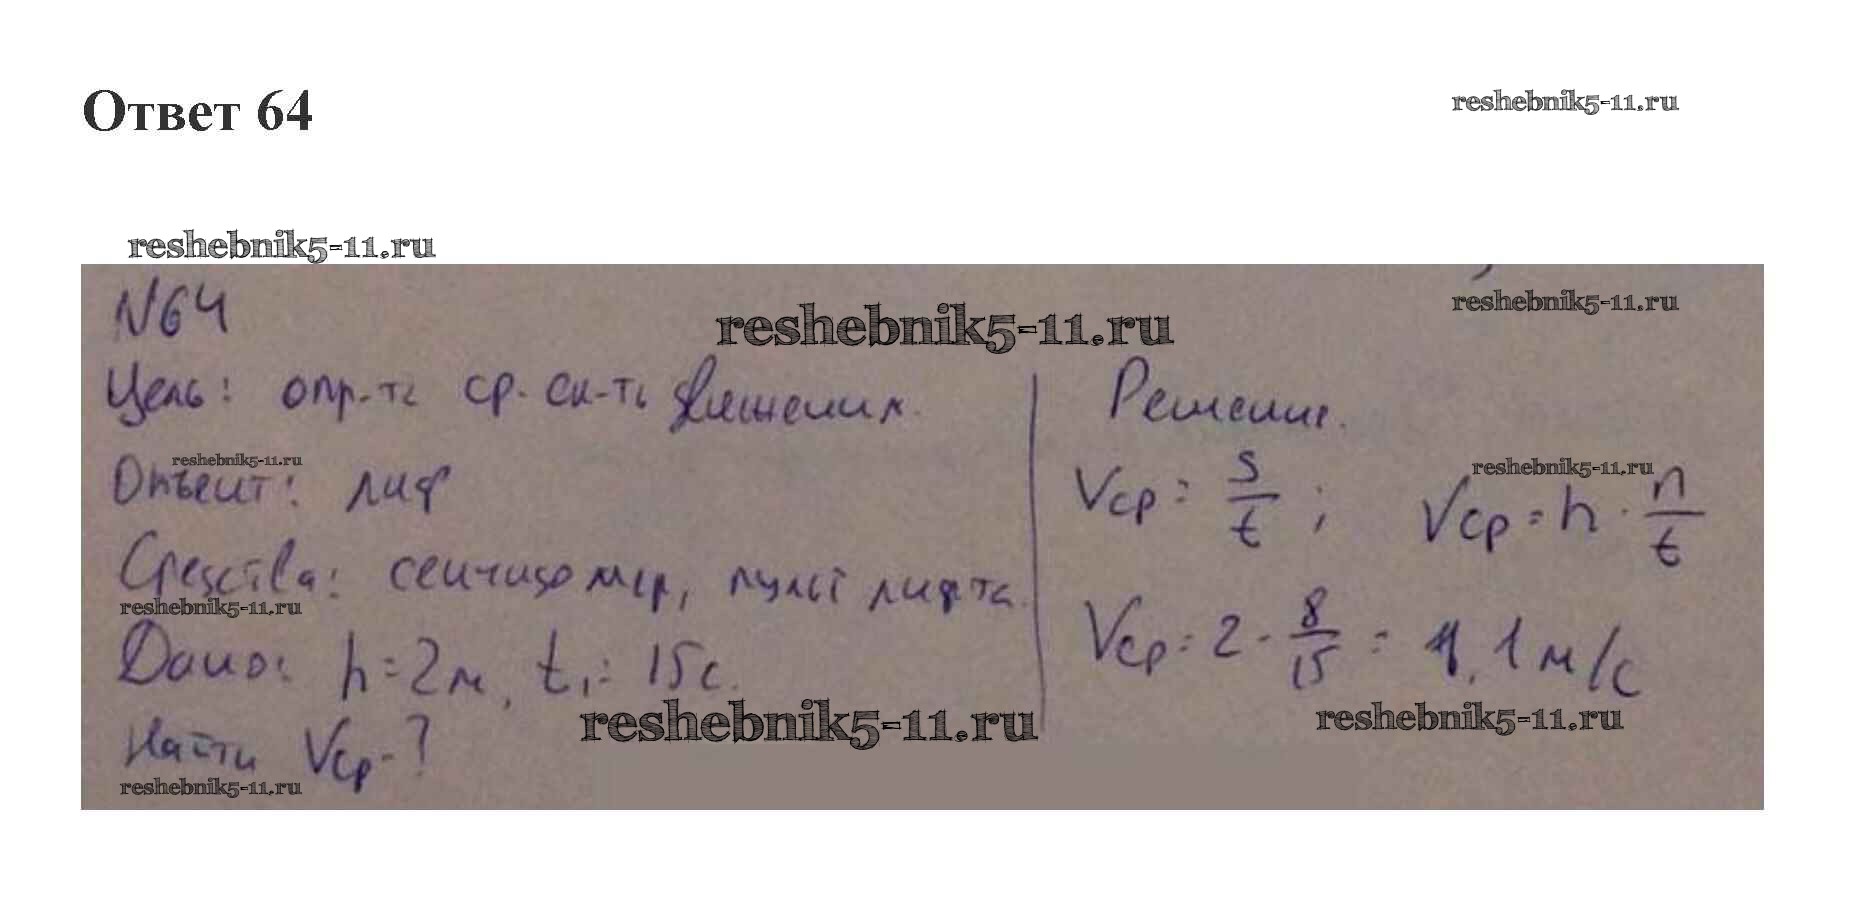 Ответ 64
reshebnik5-11.ru
reshebnik5-11.ru
N64
reshebnik5-11.ru
reshebnik5-11.ru
Цель: опр-ть ср. ск-ть движения.
Объект: лиф
reshebnik5-11.ru
Средства: секундомер, пульт лифта.
reshebnik5-11.ru
Дано: h=2м, t₁= 15с.
Найти Vср-?
reshebnik5-11.ru
reshebnik5-11.ru
Решение.
Vср = s/t ; Vср = h · n/t
reshebnik5-11.ru
Vср = 2 · 8/15 = 1,1 м/с
reshebnik5-11.ru